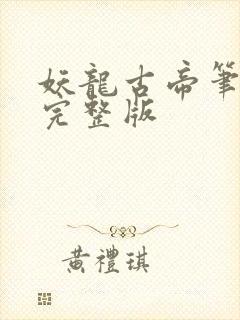 妖龍古帝筆
完整版
黃禮琪